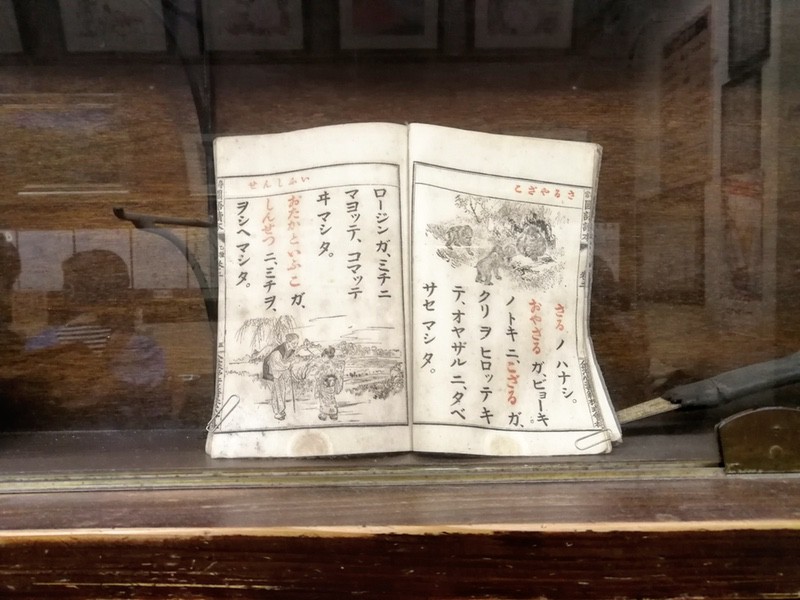 さるやざこ
さる ノ ハナシ。
おやざる ガ、ビョーキ
ノトキ ニ、こざる ガ、
クリ ヲ ヒロッテ キ
テ、オヤザル ニ、タベ
サセ マシタ。
いふしんせ
ロージン ガ、ミチ ニ
マヨッテ、コマッテ
ヰ マシタ。
おたかといふこ ガ、
しんせつ ニ、ミチ ヲ、
ヲシヘ マシタ。